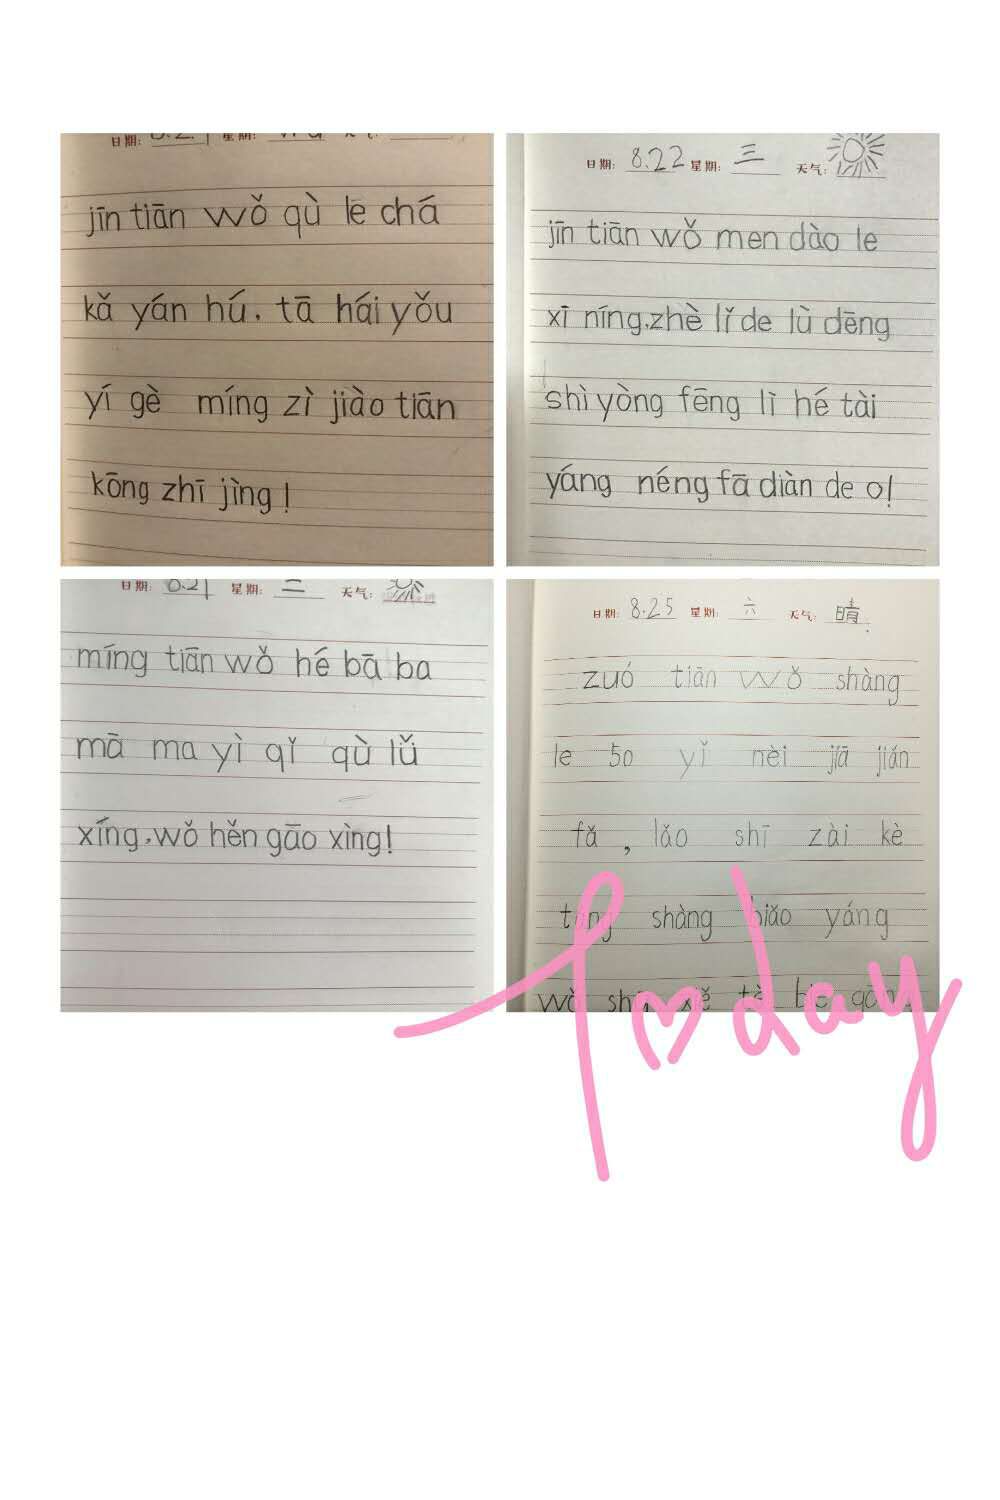 日期: 星期: 天气:
jīn tiān wǒ qù le chá
kǎ yán hú. tā hái yǒu
yí gè míng zì jiào tiān
kōng zhī jìng!
日期: 8.22 星期: 三 天气:
jīn tiān wǒ men dào le
xī níng.zhè lǐ de lù dēng
shì yòng fēng lì hé tài
yáng néng fā diàn de o!
日期: 8.21 星期: 天气:
míng tiān wǒ hé bā ba
mā ma yì qǐ qù lǚ
xíng.wǒ hěn gāo xìng!
日期: 8.25 星期: 六 天气: 晴.
zuó tiān wǒ shàng
le 50 yǐ nèi jiā jiǎn
fǎ , lǎo shī zài kè
táng shàng biǎo yáng
wǒ
Today